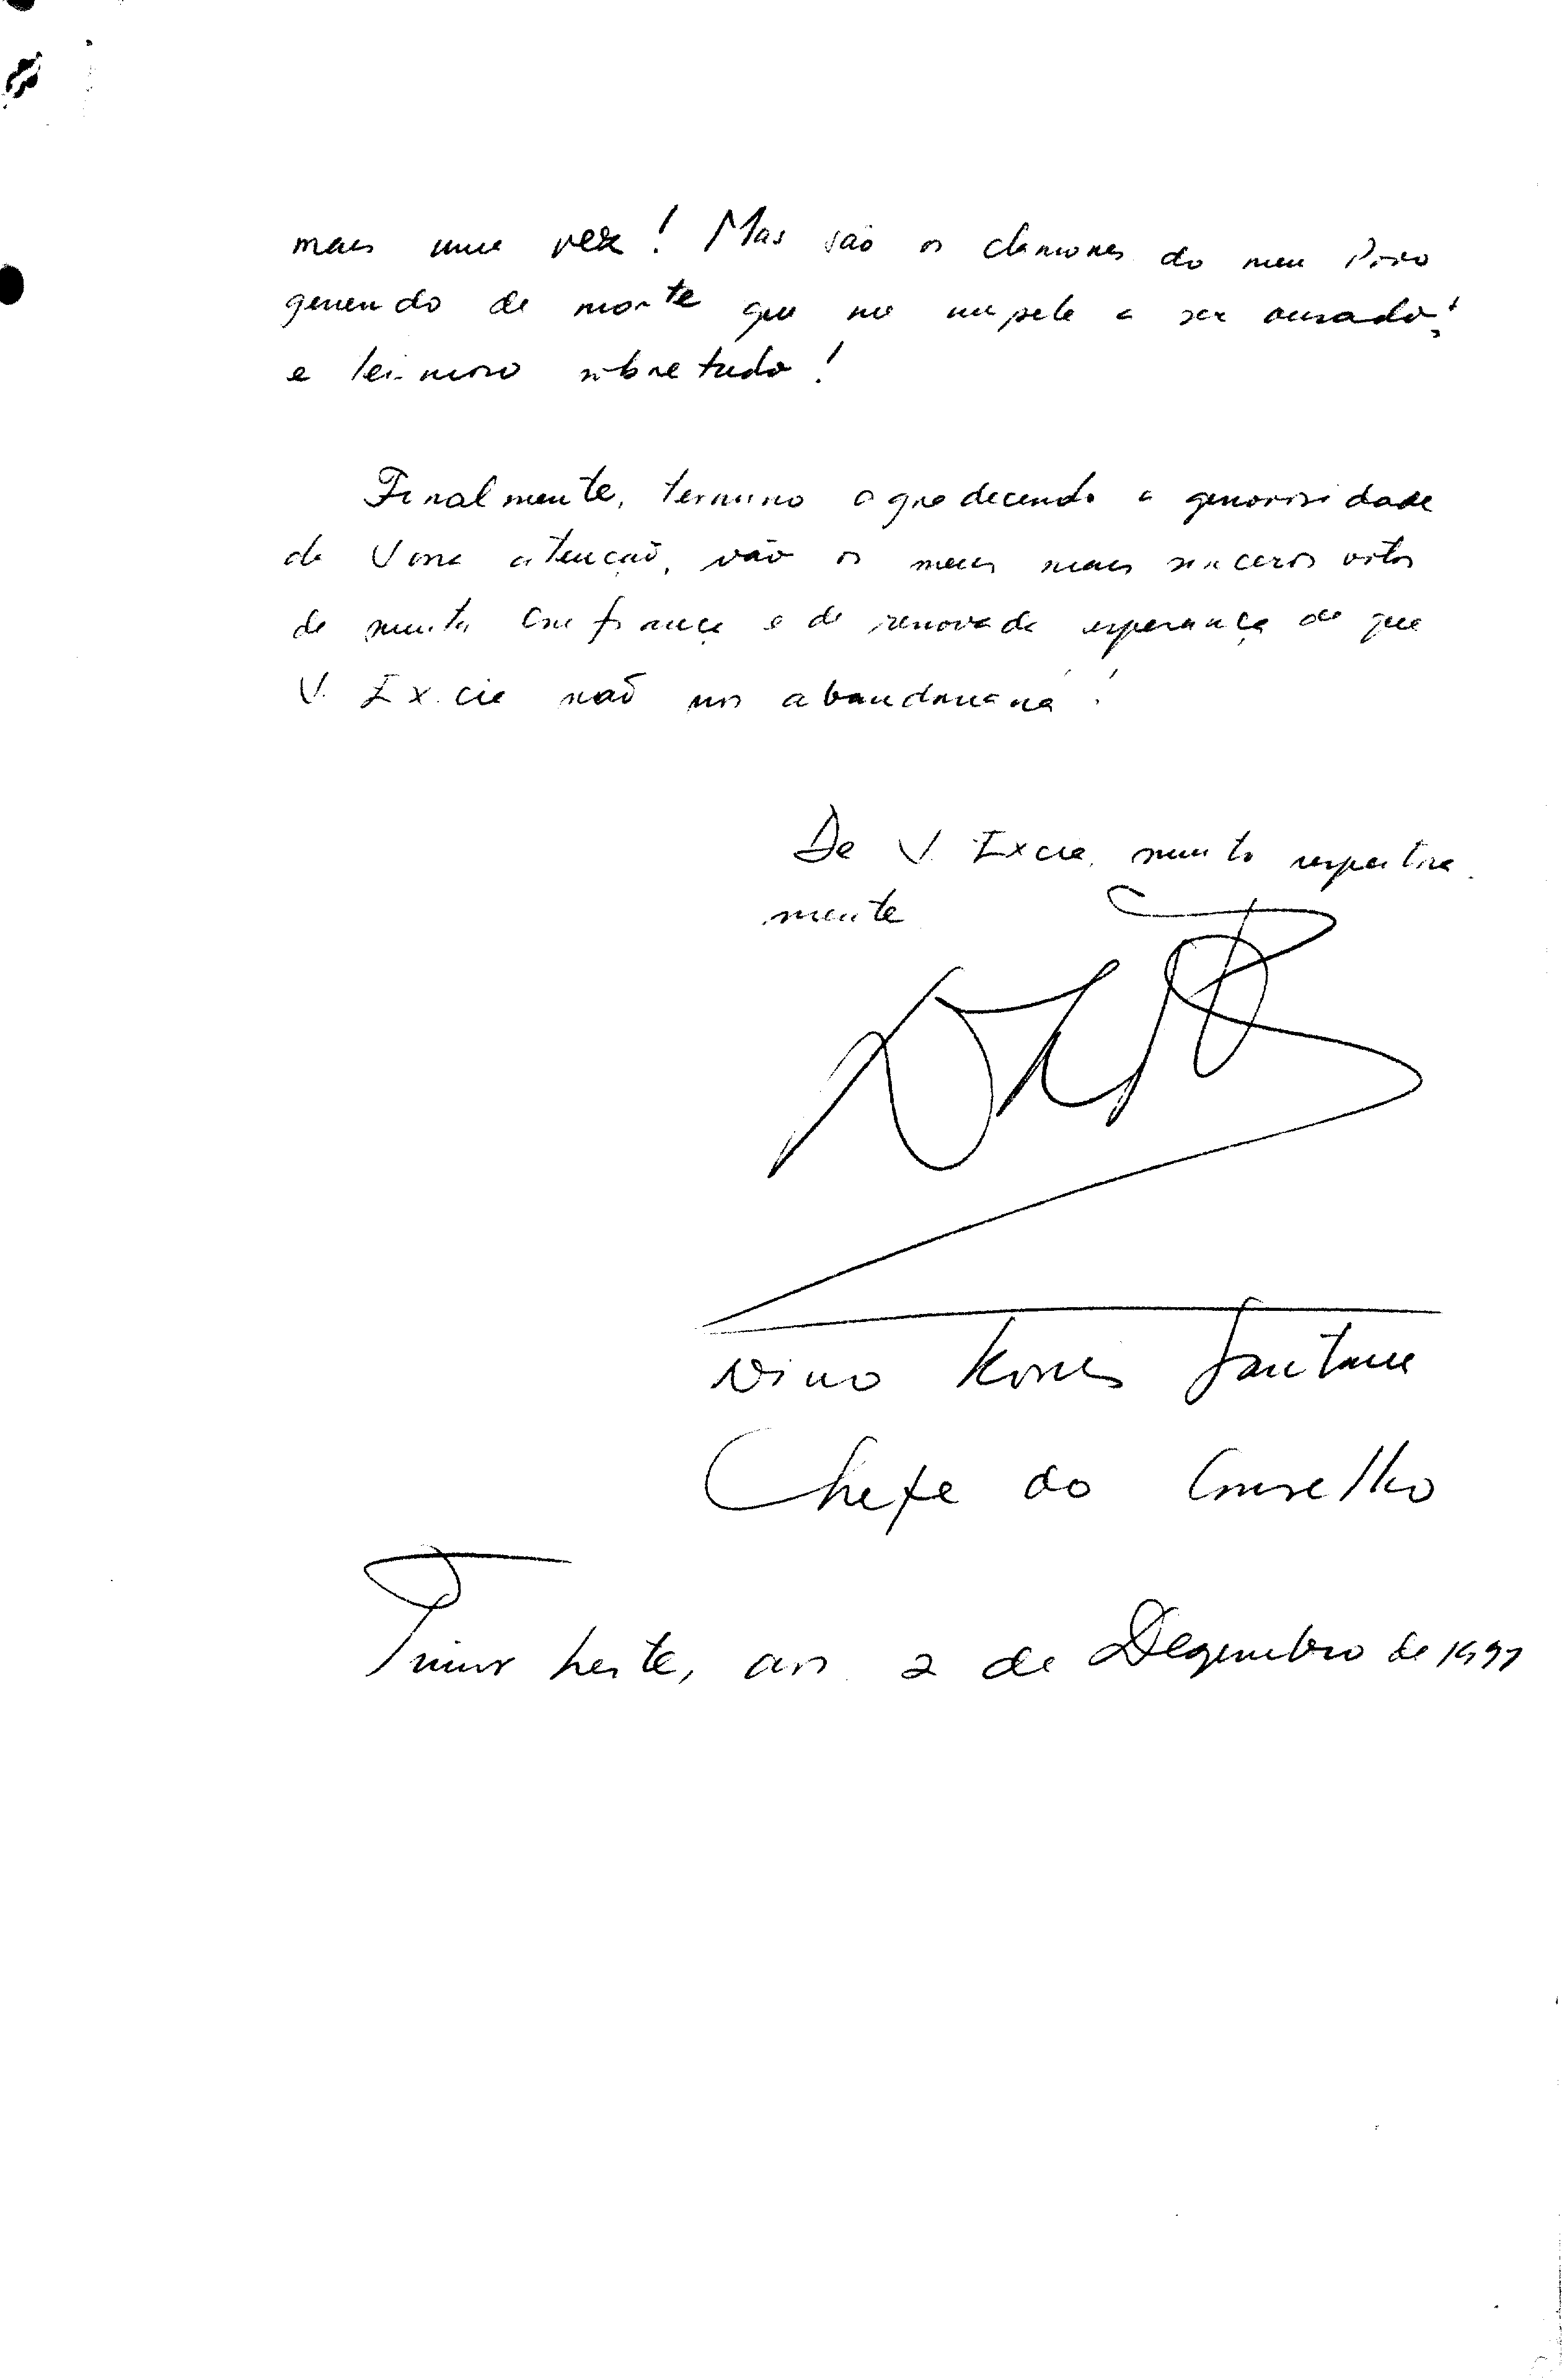 mais uma vez! Mas são os clamores do meu Povo
gemendo de morte que me impele a ser ousado!
e teimoso sobretudo!
Finalmente, termino agradecendo a generosidade
da Vossa atenção, vão os meus mais sinceros votos
de muita confiança e de renovada esperança de que
V. Excia não nos abandonará!
De V. Excia, muito respeitosa
mente
Nino Konis Santana
Chefe do Conselho
Timor Leste, aos 2 de Dezembro de 1997